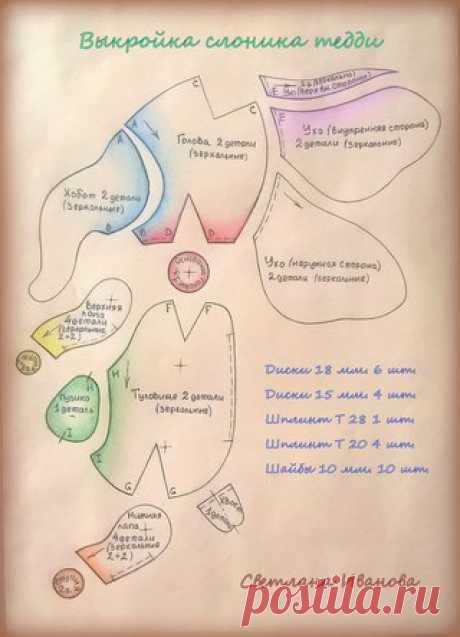 Выкройка слоника тедди
2 д (зеркально)
Ухо (верхн. сторона)
E
C
C
E
Ухо (внутренняя сторона)
2 детали (зеркальные)
Голова 2 детали
(зеркальные)
A
A
Хобот 2 детали
(зеркальные)
B
B
D
D
Ухо (наружная сторона)
2 детали (зеркальные)
Верхняя
лапа
4 детали
(зеркальные
2+2)
F
F
Диски 18 мм. 6 шт.
Диски 15 мм 4 шт.
Шплинт Т 28 1 шт.
Шплинт Т 20 4 шт.
Шайбы 10 мм. 10 шт.
H
H
Пузико
1 деталь
I
I
Туловище 2 детали
(зеркальные)
G
G
Хвост
1 деталь
Нижняя
лапа
4 детали
(зеркальные
2+2)
Светлана Иванова
postila.ru